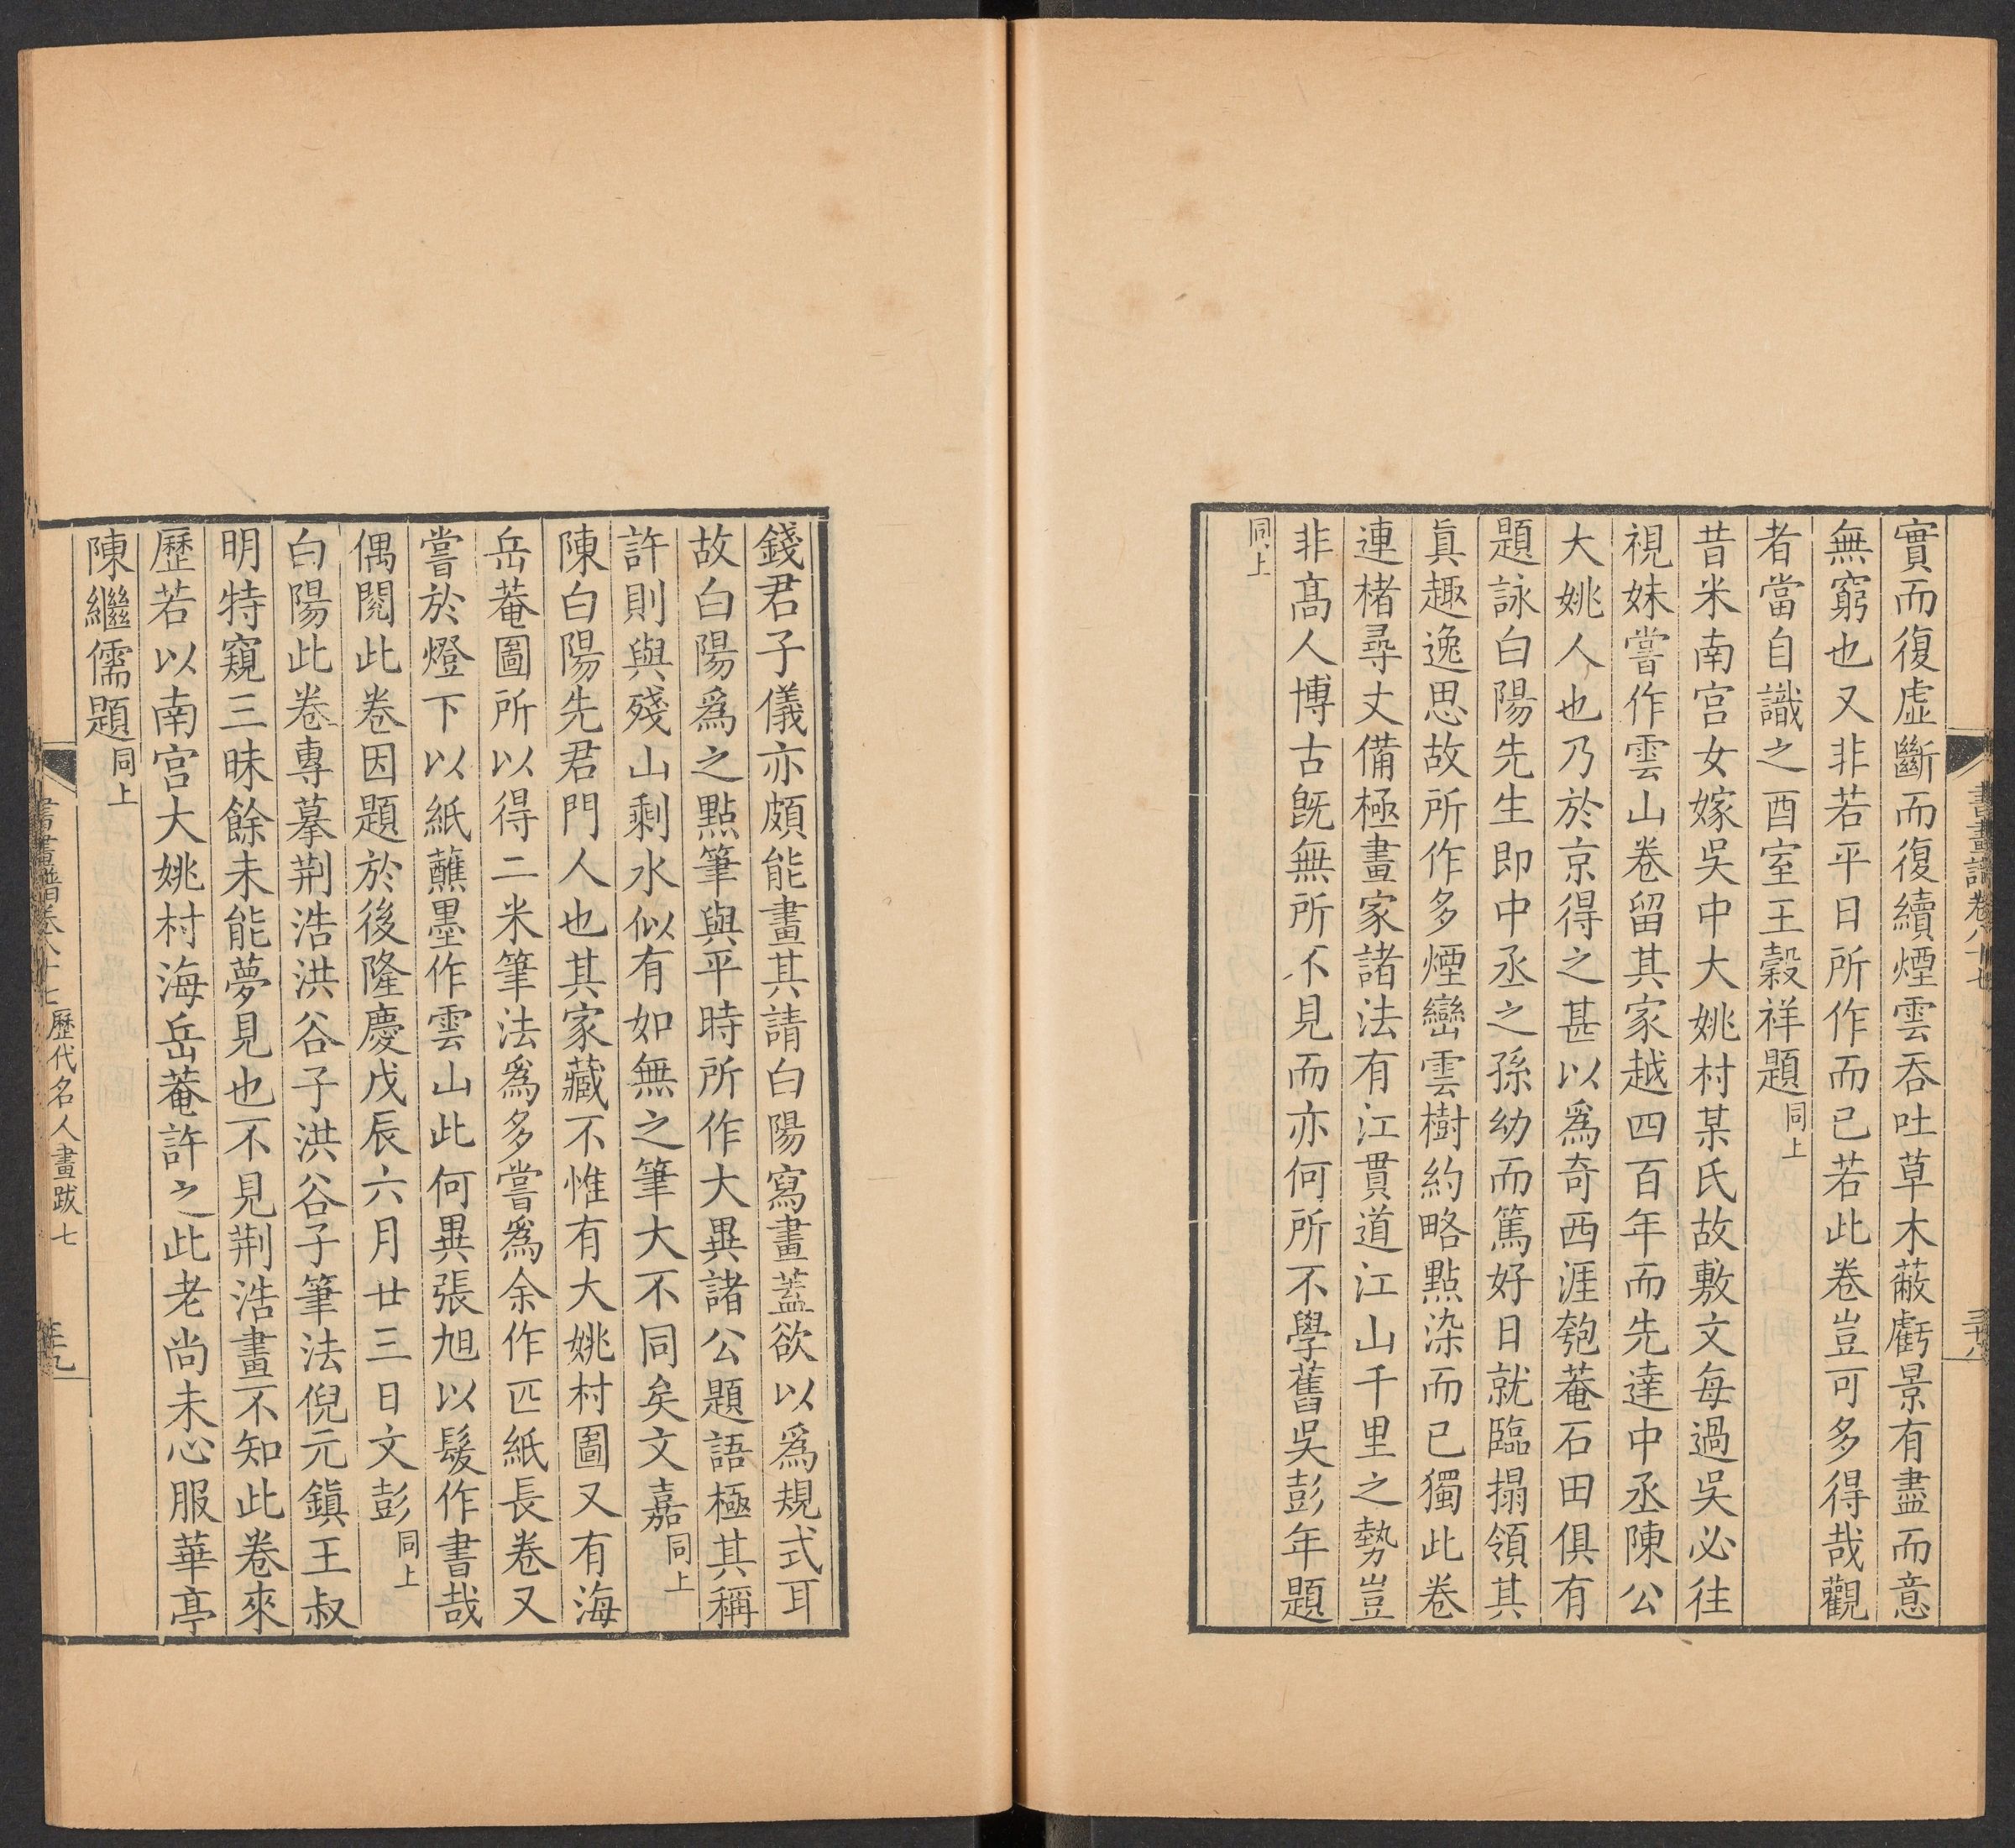 書畫譜卷八十七
三十八
實而復虛斷而復續煙雲吞吐草木蔽虧景有盡而意
無窮也又非若平日所作而已若此卷豈可多得哉觀
者當自識之酉室王穀祥題同上
昔米南宮女嫁吳中大姚村某氏故敷文每過吳必往
視妹嘗作雲山卷留其家越四百年而先達中丞陳公
大姚人也乃於京得之甚以爲奇西涯匏菴石田俱有
題詠白陽先生即中丞之孫幼而篤好日就臨搨領其
眞趣逸思故所作多煙巒雲樹約略點染而已獨此卷
連楮尋丈備極畫家諸法有江貫道江山千里之勢豈
非高人博古旣無所不見而亦何所不學舊吳彭年題
同上
錢君子儀亦頗能畫其請白陽寫畫蓋欲以爲規式耳
故白陽爲之點筆與平時所作大異諸公題語極其稱
許則與殘山剩水似有如無之筆大不同矣文嘉同上
陳白陽先君門人也其家藏不惟有大姚村圖又有海
岳菴圖所以得二米筆法爲多嘗爲余作匹紙長卷又
嘗於燈下以紙蘸墨作雲山此何異張旭以髮作書哉
偶閱此卷因題於後隆慶戊辰六月廿三日文彭同上
白陽此卷專摹荆浩洪谷子洪谷子筆法倪元鎭王叔
明特窺三昧餘未能夢見也不見荆浩畫不知此卷來
歷若以南宮大姚村海岳菴許之此老尚未心服華亭
陳繼儒題同上
書畫譜卷八十七 歷代名人畫跋七
三十九